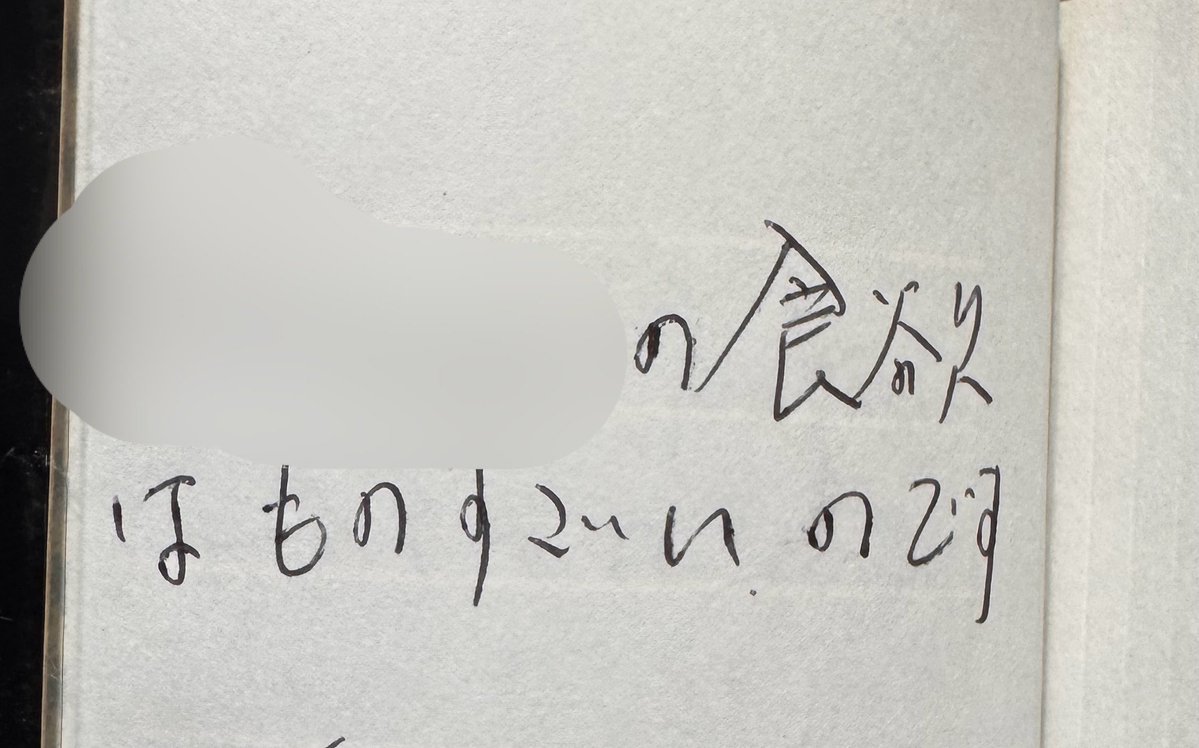 の食欲
はものすごいのです